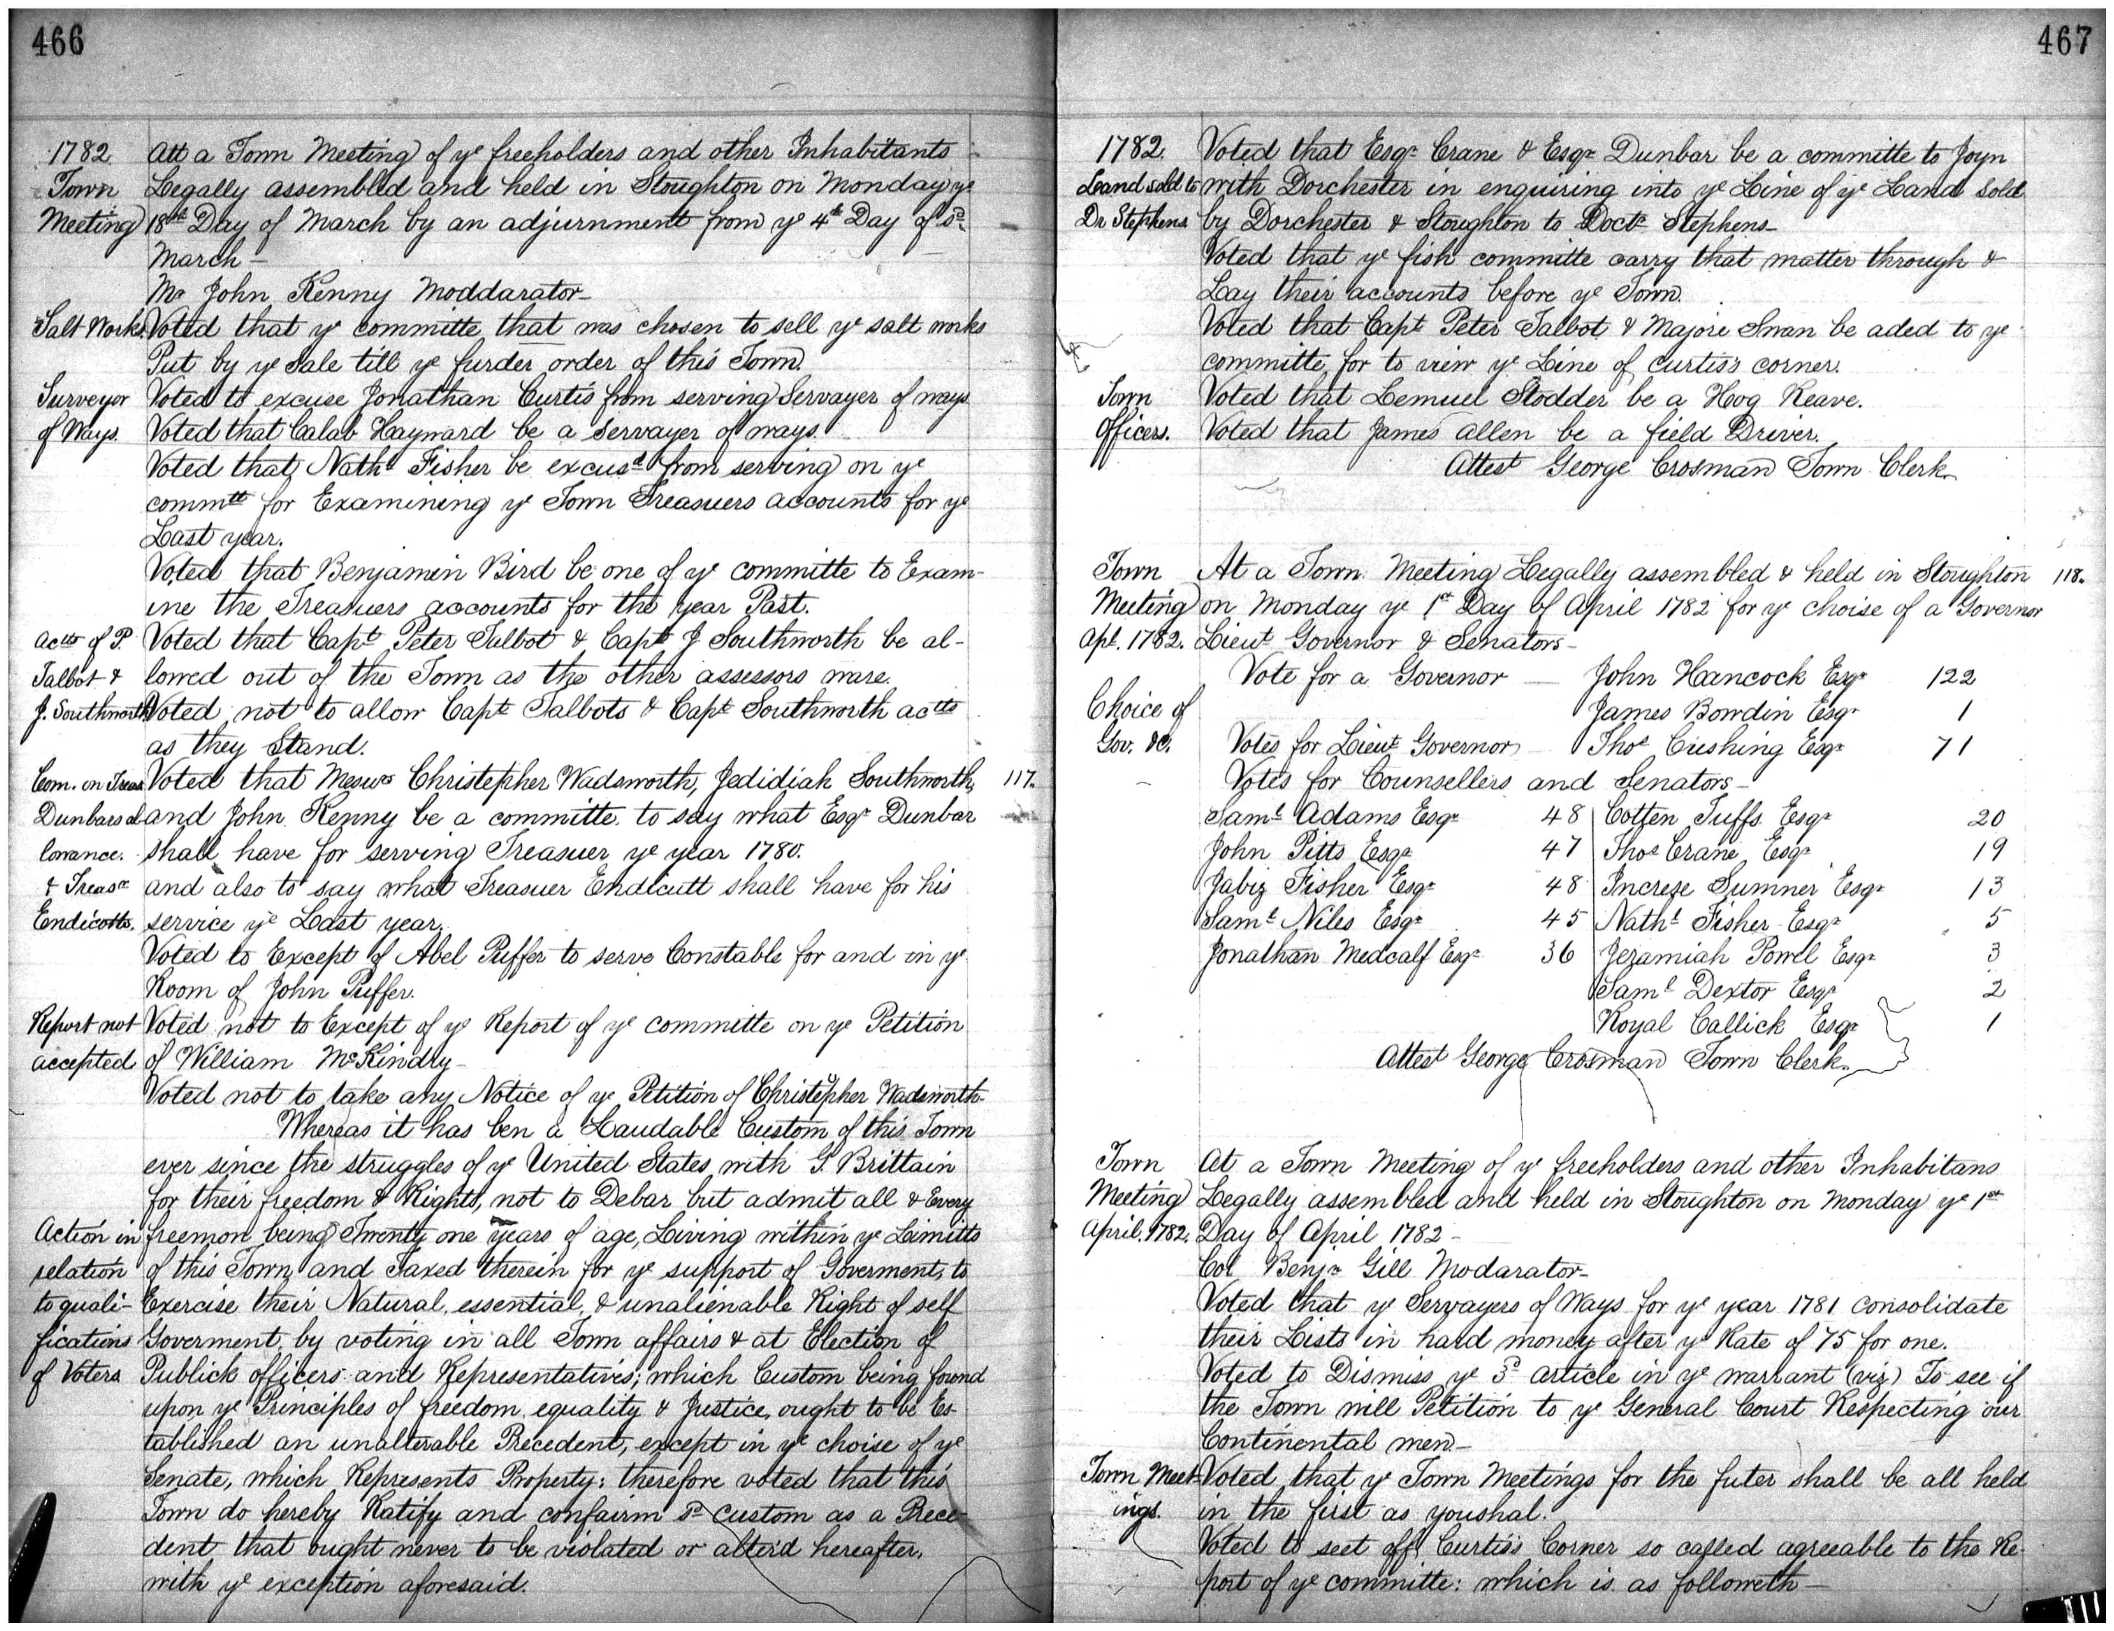 466
1782
Town
Meeting
Att a Town Meeting of ye freeholders and other Inhabitants
Legally assembled and held in Stoughton on Monday ye
18th Day of March by an adjurnment from ye 4th Day of sd
March —
Mr John Kenny Moddarator —
Salt Works.
Voted that ye committe that was chosen to sell ye salt works
Put by ye Sale till ye furder order of this Town.
Surveyor
of Ways.
Voted to excuse Jonathan Curtis from serving Servayer of ways
Voted that Calab Hayward be a servayer of ways.
Voted that Nathl Fisher be excusd from serving on ye
commtt for Examining ye Town Treasuers accounts for ye
Last year.
Voted that Benjamin Bird be one of ye committe to Exam-
ine the Treasuers accounts for the year Past.
actts of P.
Talbot &
J. Southworth
Voted that Capt Peter Talbot & Capt J Southworth be al-
lowed out of the Town as the other assessors ware.
Voted not to allow Capt Talbots & Capt Southworth actts
as they Stand.
Com. on Treas
Dunbars al
lowance.
& Treasr
Endicotts.
Voted that Meswrs Christepher Wadsworth, Jedidiah Southworth, 117.
and John Kenny be a committe to say what Esqr Dunbar
shall have for serving Treasuer ye year 1780.
and also to say what Treasuer Endicutt shall have for his
service ye Last year.
Voted to Except of Abel Puffer to serve Constable for and in ye
Room of John Puffer.
Report not
accepted
Voted not to Except of ye Report of ye committe on ye Petition
of William McKindry —
Voted not to take any Notice of ye Petition of Christepher Wadsworth-
Whereas it has ben a Laudable Custom of this Town
ever since the struggles of ye United States with G. Brittain
for their freedom & Rights, not to Debar but admit all & Every
Action in
relation
to quali-
fications
of Voters
freemon being Twenty one years of age, Living within ye Limitts
of this Town and Taxed therein for ye support of Goverment, to
Exercise their Natural, essential, & unalienable Right of self
Goverment, by voting in all Town affairs & at Election of
Publick officers and Representatives; which Custom being found
upon ye Principles of freedom equality & Justice, ought to be Es-
tablished an unalterable Precedent, except in ye choise of ye
Senate, which Represents Property; therefore voted that this
Town do hereby Ratify and confairm sd custom as a Prece-
dent that ought never to be violated or alterd hereafter,
with ye exception aforesaid.
467
1782.
Land sold to
Dr Stephens
Voted that Esqr Crane & Esqr Dunbar be a committe to Joyn
with Dorchester in enquiring into ye Line of ye Land sold
by Dorchester & Stoughton to Doctr Stephens —
Voted that ye fish committe carry that matter through &
Lay their accounts before ye Town.
Voted that Capt Peter Talbot & Majore Swan be aded to ye
committe, for to view ye Line of Curtis's corner.
Town
officers.
Voted that Lemuel Stodder be a Hog Reave.
Voted that James allen be a field Driver.
Attest George Crosman Town Clerk.
Town
Meeting
Apl. 1782.
At a Town Meeting Legally assembled & held in Stoughton 118.
on Monday ye 1st Day of April 1782 for ye choise of a Governor
Lieut Governor & Senators —
Choice of
Gov. &c.
Vote for a Governor — John Hancock Esqr 122
James Bowdin Esqr 1
Votes for Lieut Governor — Thos Cushing Esqr 71
Votes for Counsellers and Senators —
Saml Adams Esqr 48 Cotten Tuffs Esqr 20
John Pitts Esqr 47 Thos Crane Esqr 19
Jabiz Fisher Esqr 48 Increse Sumner Esqr 13
Saml Niles Esqr 45 Nathl Fisher Esqr 5
Jonathan Medcalf Esqr 36 Jeramiah Powel Esqr 3
Saml Dextor Esqr 2
Royal Callick Esqr 1
Attest George Crosman Town Clerk.
Town
Meeting
April. 1782.
At a Town Meeting of ye freeholders and other Inhabitans
Legally assembled and held in Stoughton on Monday ye 1st
Day of April 1782 —
Col Benjn Gill Modarator —
Voted that ye Servayers of Ways for ye year 1781 consolidate
their Lists in hard money after ye Rate of 75 for one.
Voted to Dismiss ye 3d article in ye warrant (viz) To see if
the Town will Petition to ye General Court Respecting our
Continental men —
Town Meet-
ings.
Voted that ye Town Meetings for the futer shall be all held
in the first as youshal.
Voted to seet off Curtis's Corner so called agreeable to the Re-
port of ye committe: which is as followeth —